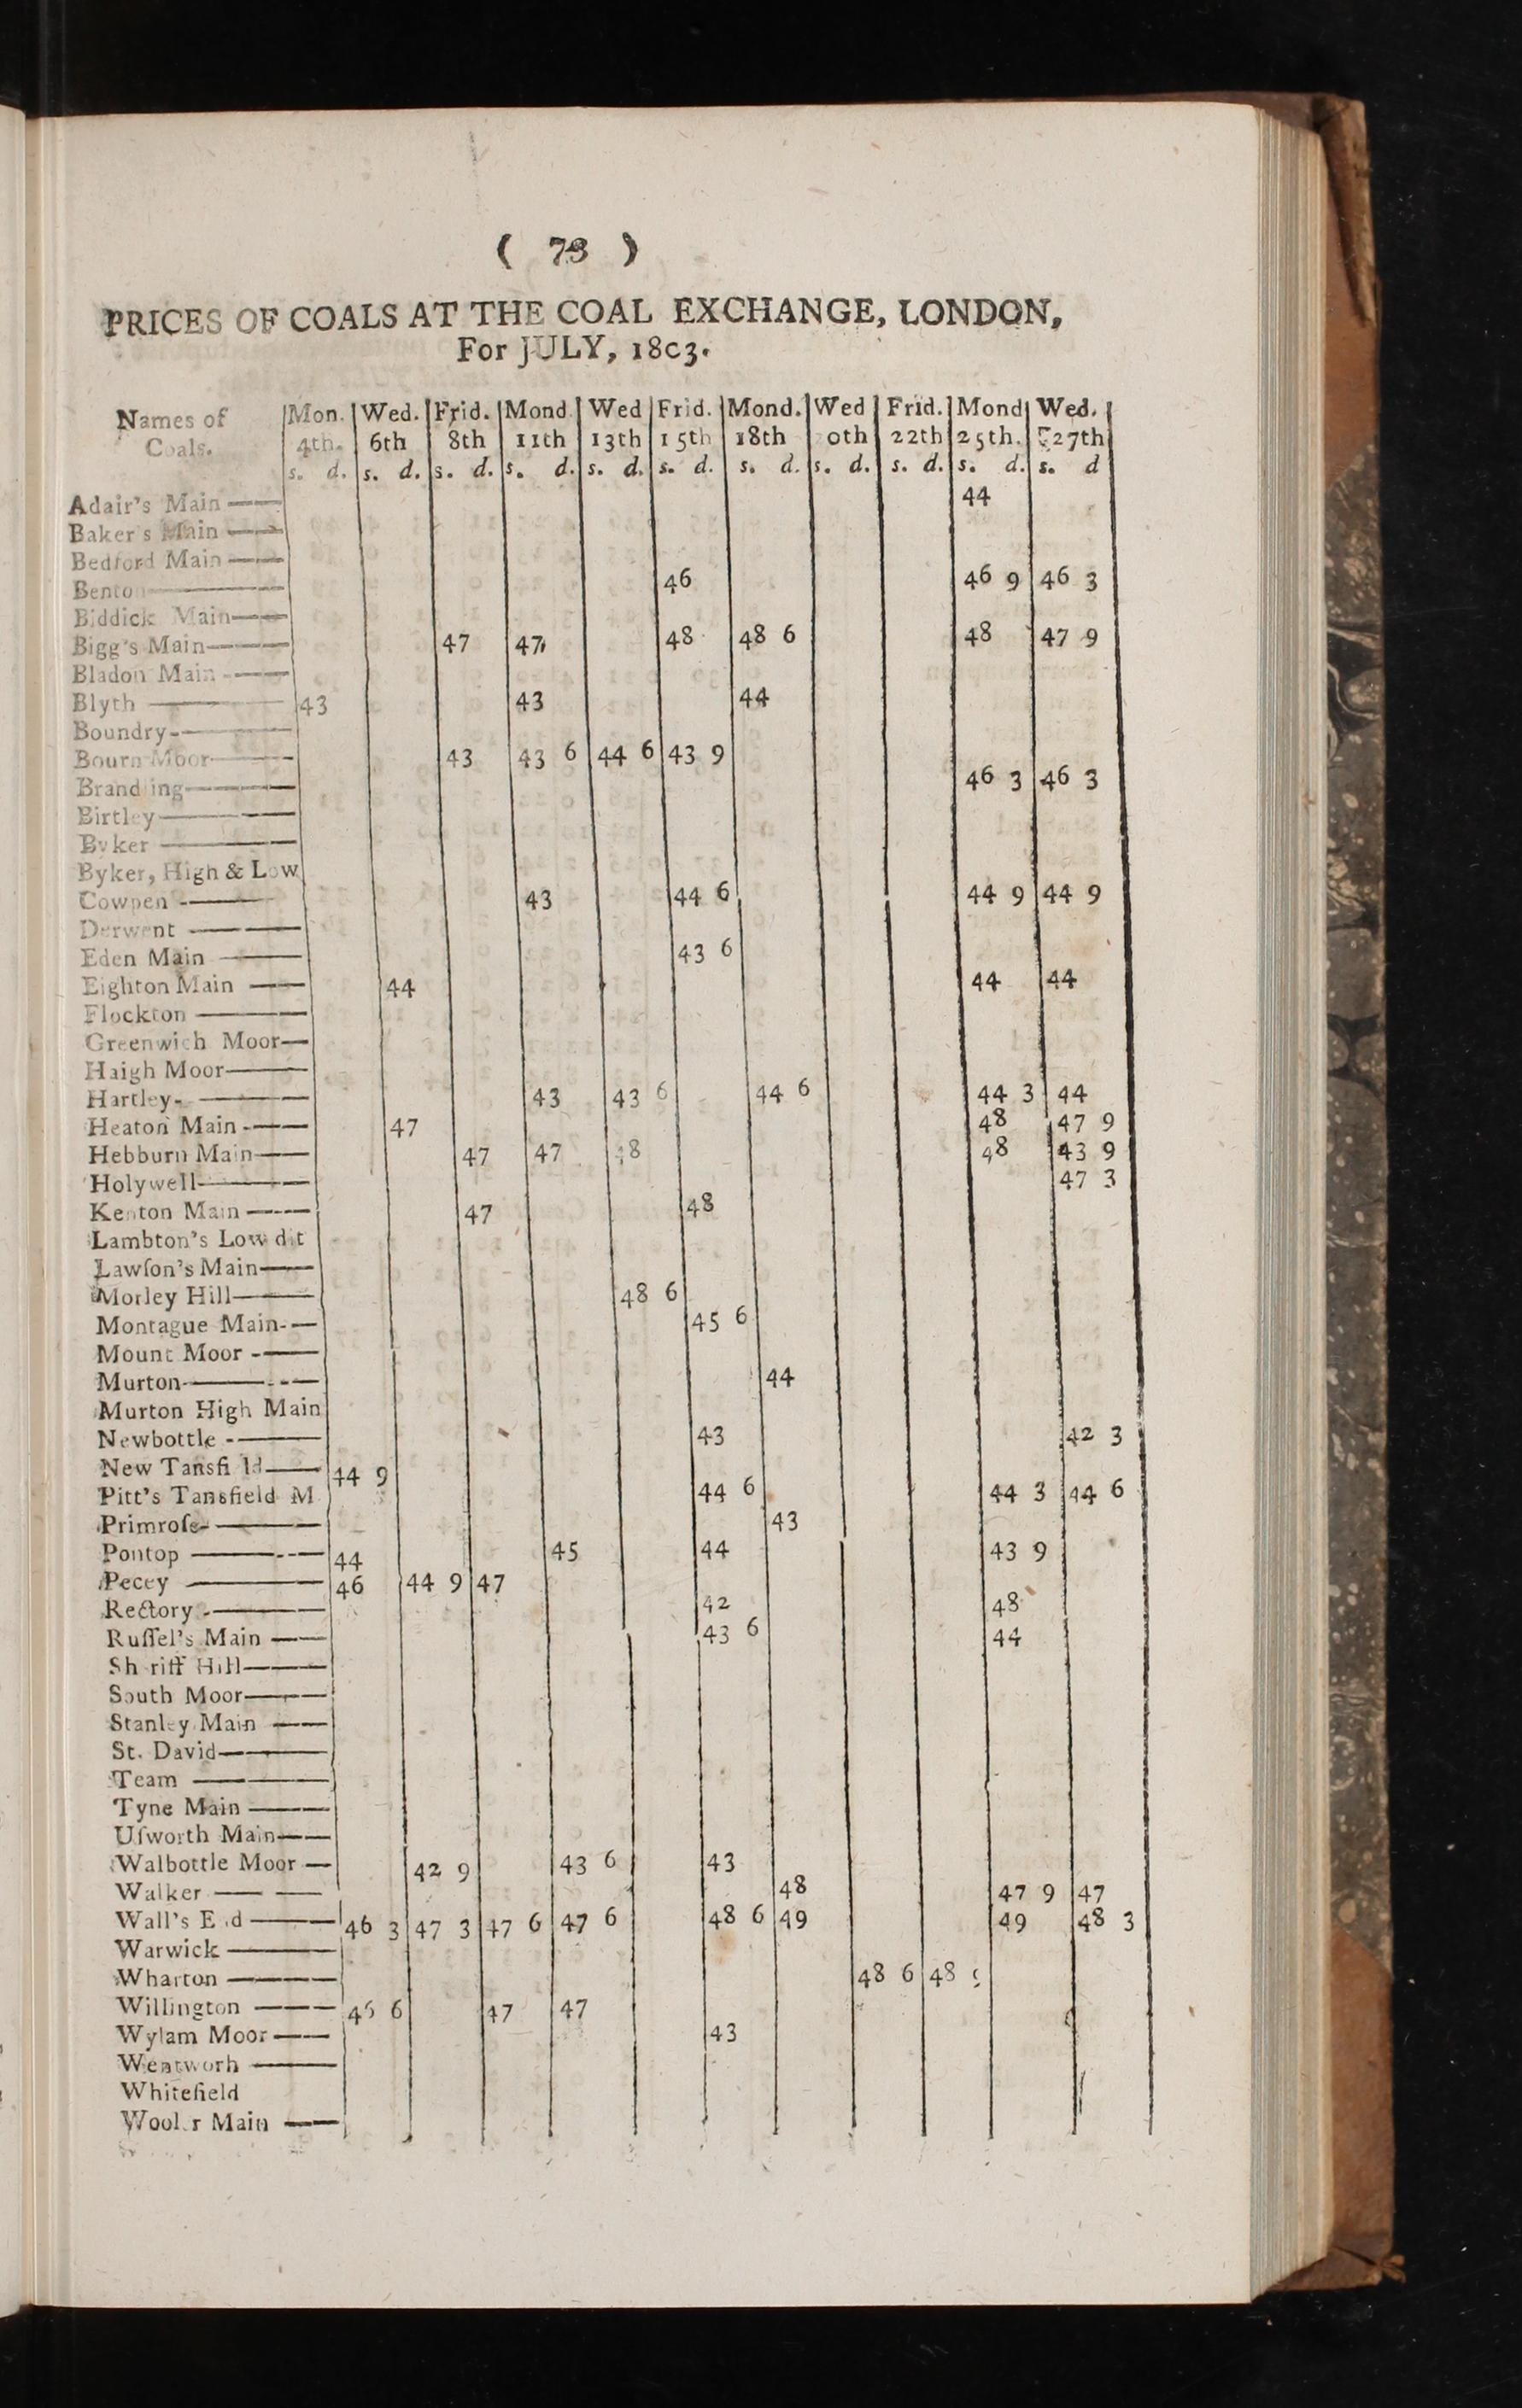 ( 73 )
PRICES OF COALS AT THE COAL EXCHANGE, LONDON,
For JULY, 18c3.
Names of Coals. Mon. 4th. Wed. 6th Frid. 8th Mond. 11th Wed 13th Frid. 15th Mond. 18th Wed 0th Frid. 22th Mond 25th. Wed. 27th
s. d. s. d. s. d. s. d. s. d. s. d. s. d. s. d. s. d. s. d. s. d
Adair's Main 44
Baker's Main
Bedford Main
Bento 46 46 9 46 3
Biddick Main
Bigg's Main 47 47 48 48 6 48 47 9
Bladon Main
Blyth 43 43 44
Boundry
Bourn Moor 43 43 6 44 6 43 9
Brand ing 46 3 46 3
Birtley
Byker
Byker, High & Low
Cowpen 43 44 6 44 9 44 9
Derwent
Eden Main 43 6
Eighton Main 44 44 44
Flockton
Greenwich Moor
Haigh Moor
Hartley 43 43 6 44 6 44 3 44
Heaton Main 47 48 47 9
Hebburn Main 47 47 48 48 43 9
Holywell 47 3
Kenton Main 47 48
Lambton's Low dit
Lawſon's Main
Morley Hill 48 6
Montague Main 45 6
Mount Moor
Murton 44
Murton High Main
Newbottle 43 42 3
New Tansfi ld 44 9
Pitt's Tansfield M 44 6 44 3 44 6
Primroſe 43
Pontop 44 45 44 43 9
Pecey 46 44 9 47
Rectory 42 48
Ruſſel's Main 43 6 44
Sh riff Hill
South Moor
Stanley Main
St. David
Team
Tyne Main
Uſworth Main
Walbottle Moor 42 9 43 6 43
Walker 48 47 9 47
Wall's E d 46 3 47 3 47 6 47 6 48 6 49 49 48 3
Warwick
Wharton 48 6 48
Willington 46 6 47 47
Wylam Moor 43
Wentworh
Whitefield
Wool r Main